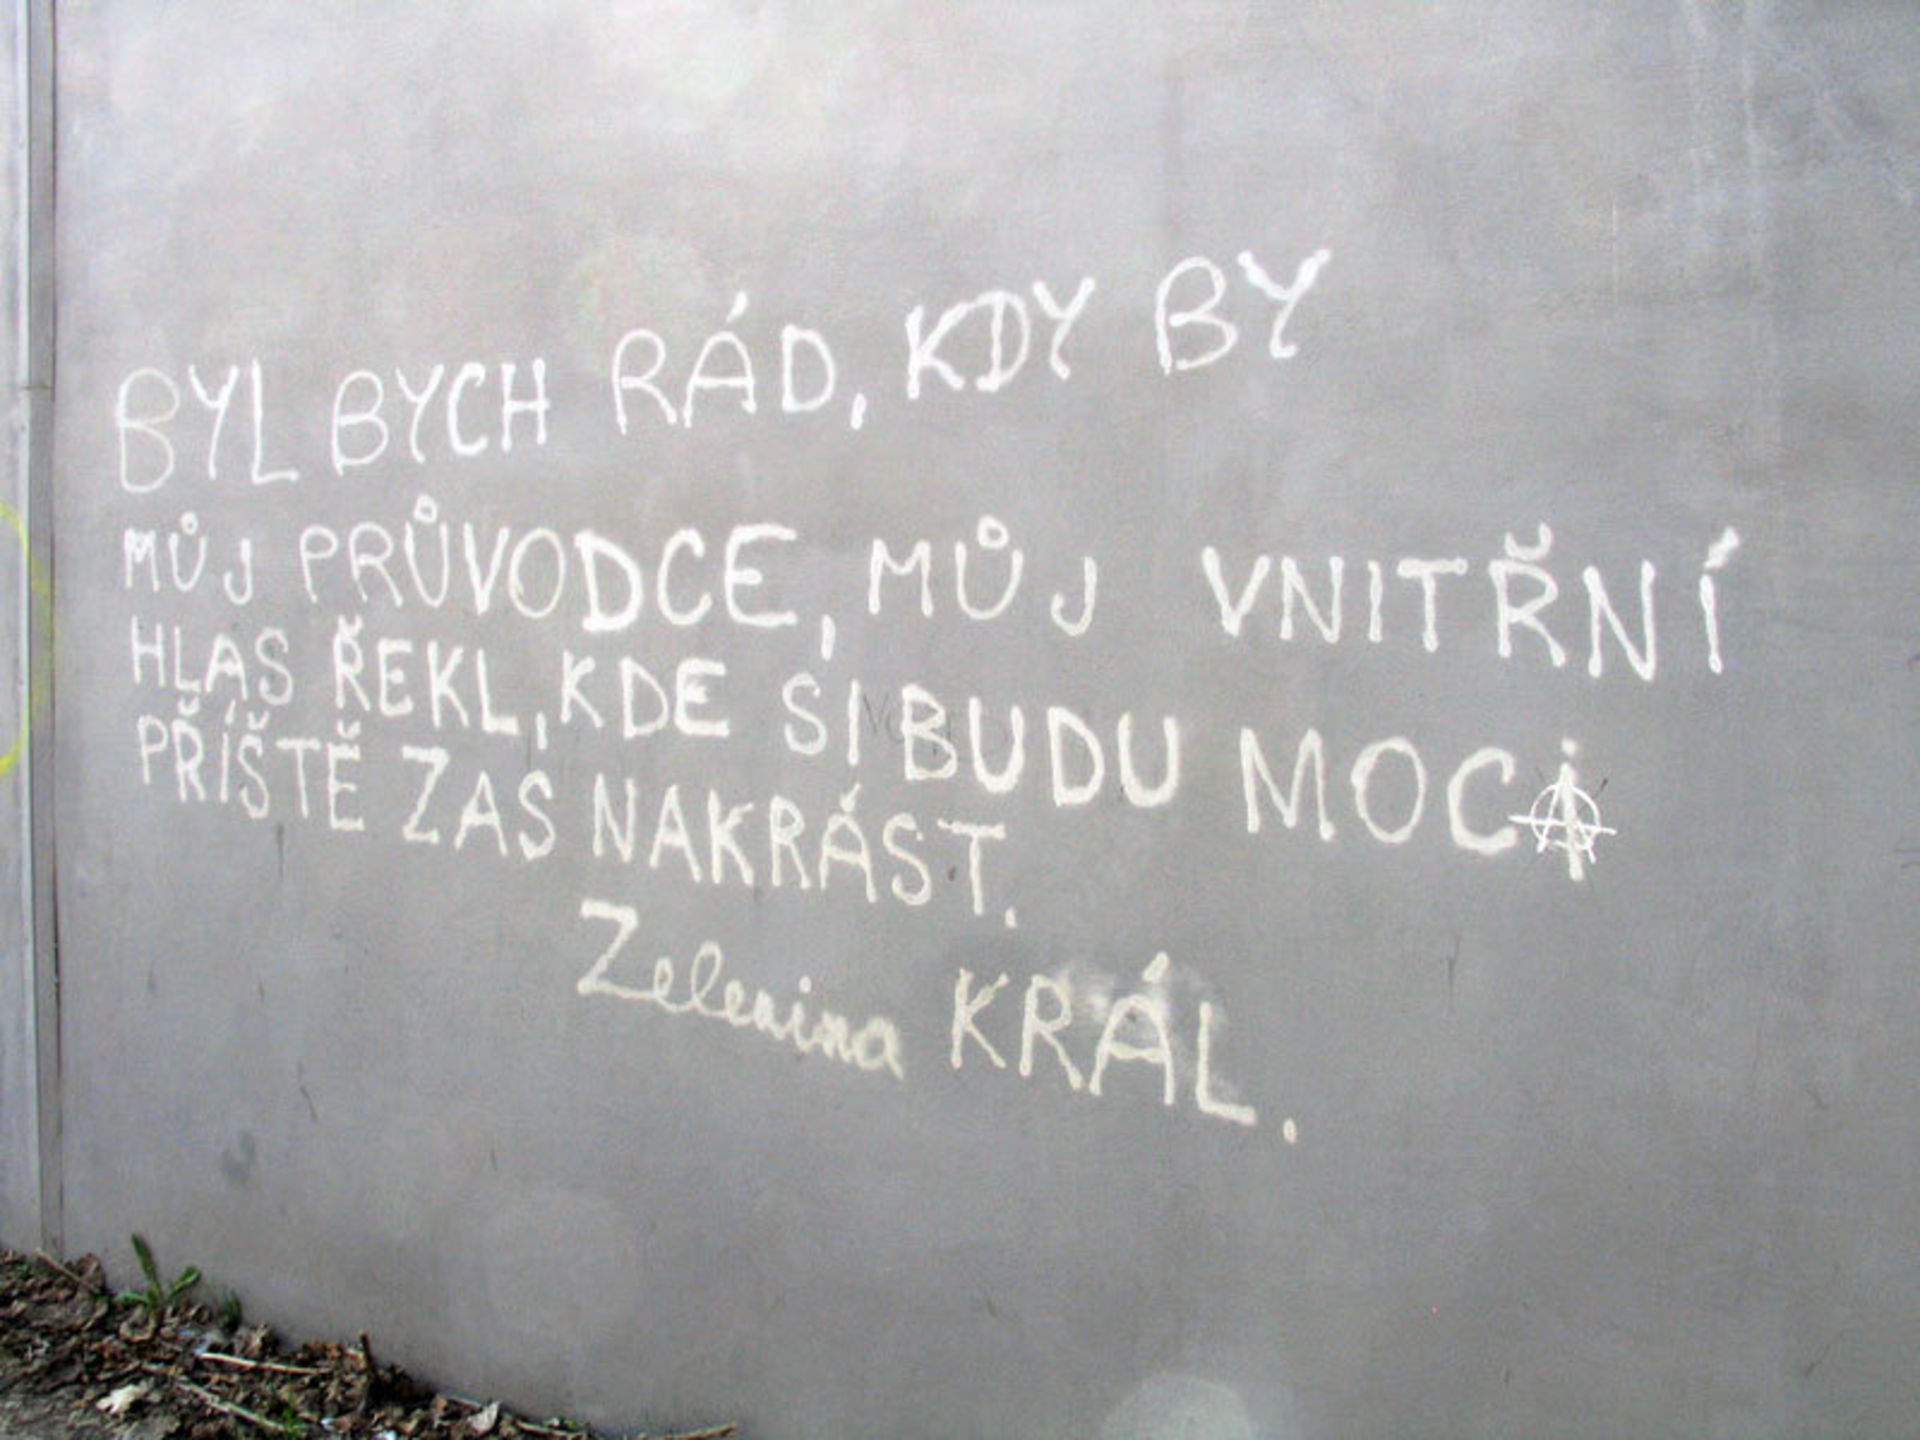 BYL BYCH RÁD, KDY BY
MŮJ PRŮVODCE, MŮJ VNITŘNÍ
HLAS ŘEKL, KDE SI BUDU MOCI
PŘÍŠTĚ ZAS NAKRÁST.
Zelenina KRÁL.